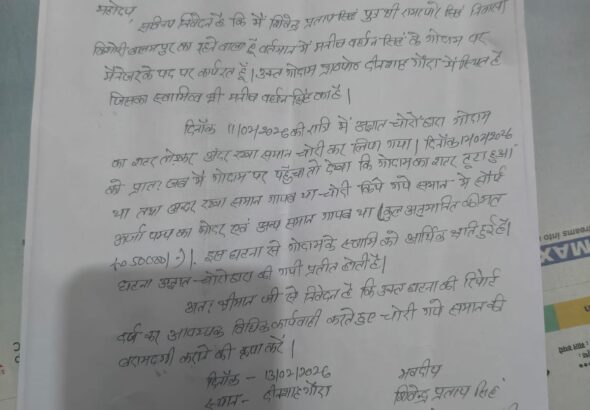 महोदय
सविनय निवेदन है कि मैं शिवेन्द्र प्रताप सिंह पुत्र श्री सिंह निवासी
का रहने वाला हूँ वर्तमान में मनीष वर्धन सिंह के गोदाम पर
मैनेजर के पद पर कार्यरत हूँ। उक्त गोदाम दीनशाह गौरा में स्थित है
जिसका स्वामित्व श्री मनीष वर्धन सिंह का है।
दिनाँक 11/02/2026 की रात्रि में अज्ञात चोरों द्वारा गोदाम
का शटर तोड़कर अंदर रखा समान चोरी कर लिया गया। दिनाँक /02/2026
को प्रातः जब मैं गोदाम पर पहुँचा तो देखा कि गोदाम का शटर टूटा हुआ
था तथा अन्दर रखा समान गायब था चोरी किये गये समान में सौर्य
ऊर्जा पम्प का मोटर एवं अन्य समान गायब था (कुल अनुमानित कीमत
)। इस घटना से गोदाम के स्वामि को आर्थिक क्षति हुई है।
घटना अज्ञात चोरो द्वारा की गयी प्रतीत होती है।
अतः श्रीमान जी से निवेदन है कि उक्त घटना की रिपोर्ट
दर्ज कर आवश्यक विधिक कार्यवाही करते हुए चोरी गये समान की
बरामदगी कराने की कृपा करें।
दिनाँक - 13/02/2026 भवदीय
स्थान - दीनशाह गौरा शिवेन्द्र प्रताप सिंह
MAX